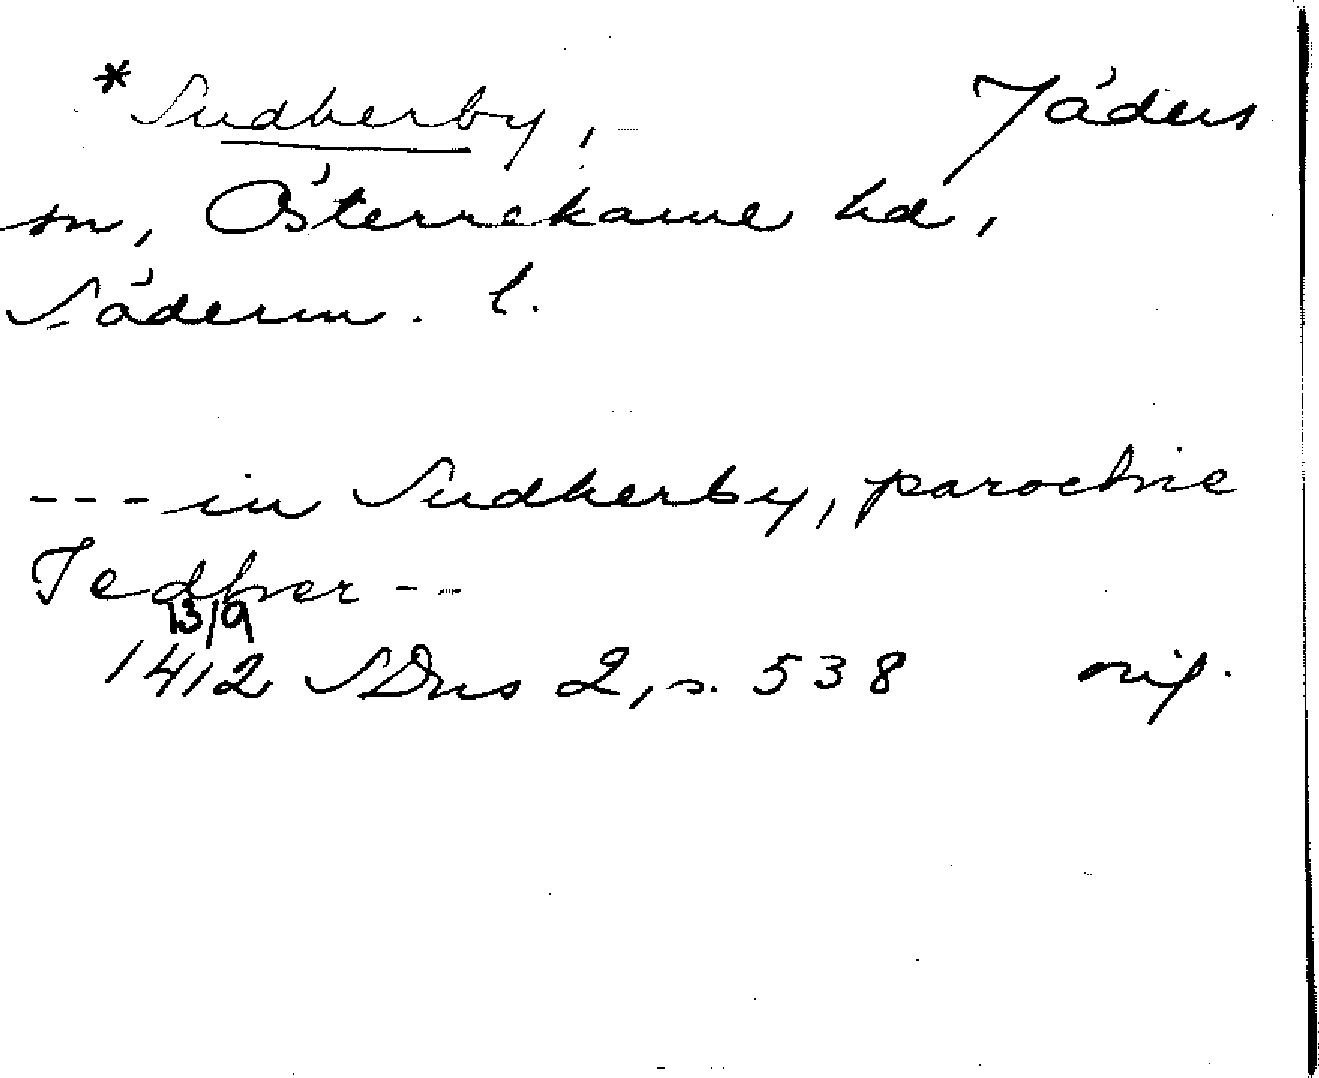 *Sudherby, Jäders
sn, Österrekarne hd,
Söderm. l.
--- in Sudherby, parochie
Jedhver --
13/9
1412 SDns 2, s. 538 orig.